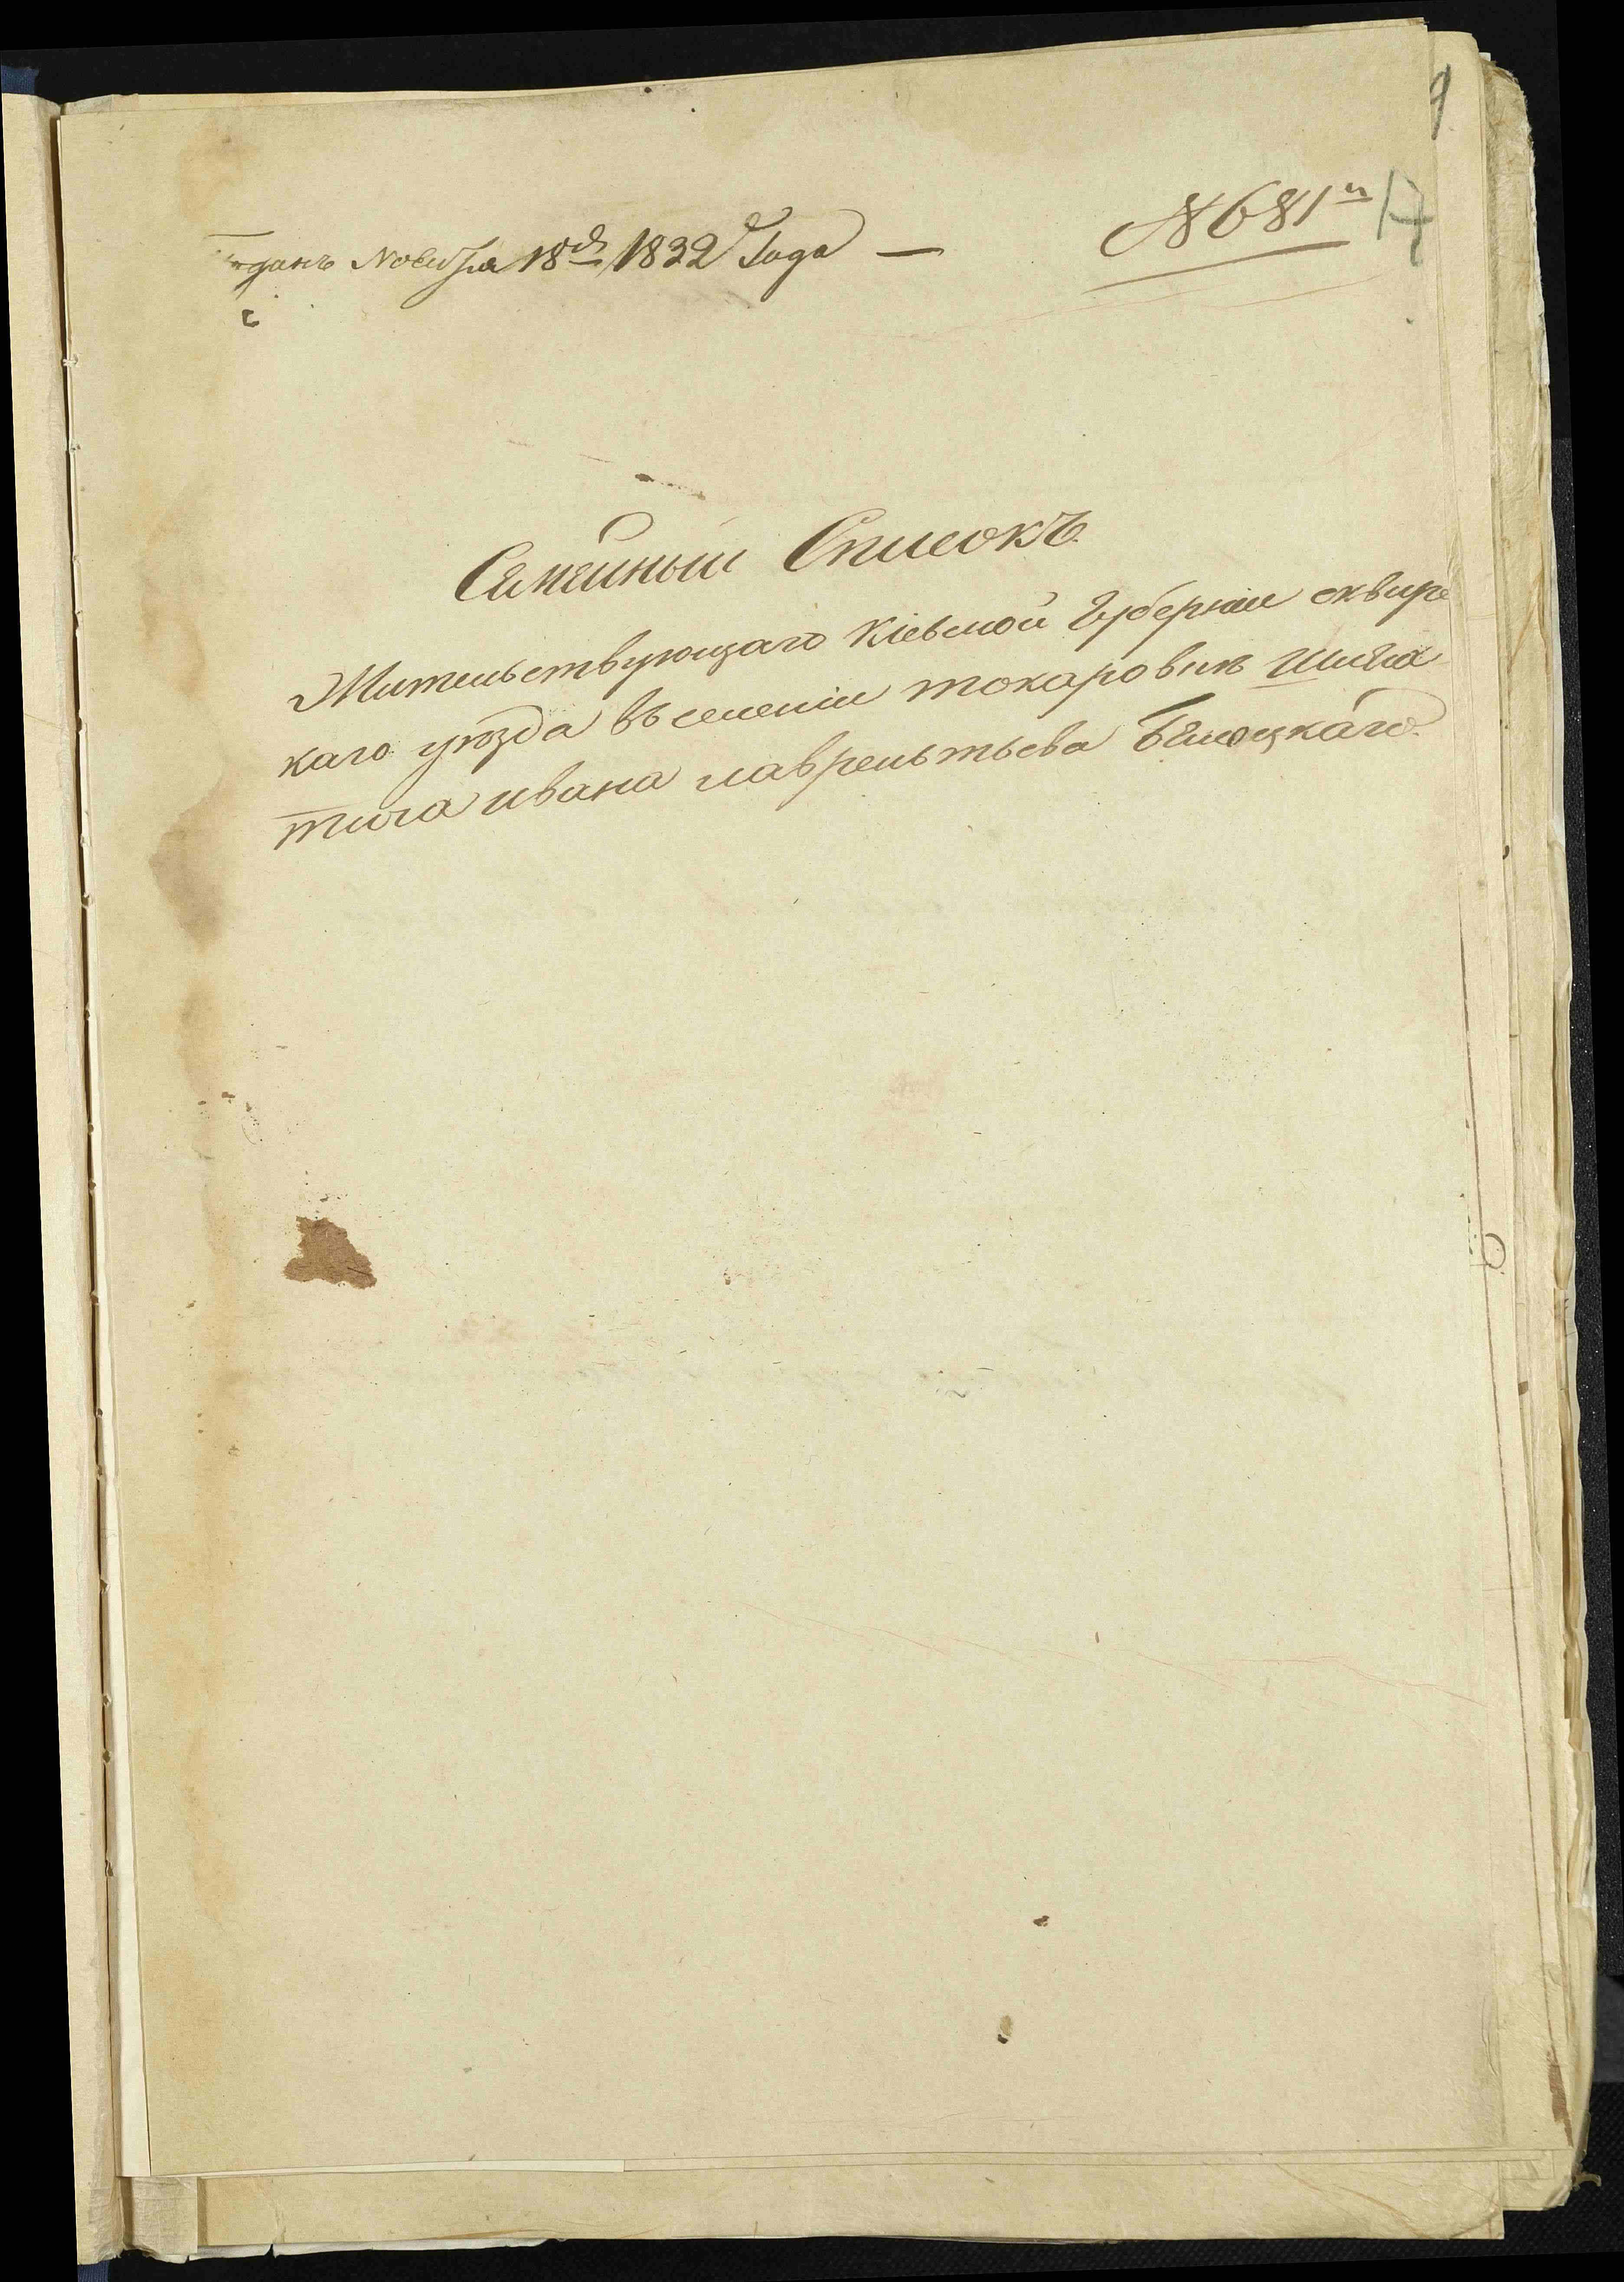 9
№ 681й 17
данъ Ноября 18го 1832 Года —
Семейный Списокъ
Жительствующаго Кіевской Губерніи сквирс
каго уѣзда въ селеніи токаровкѣ Шлях
тича ивана лаврентьева Белецкаго